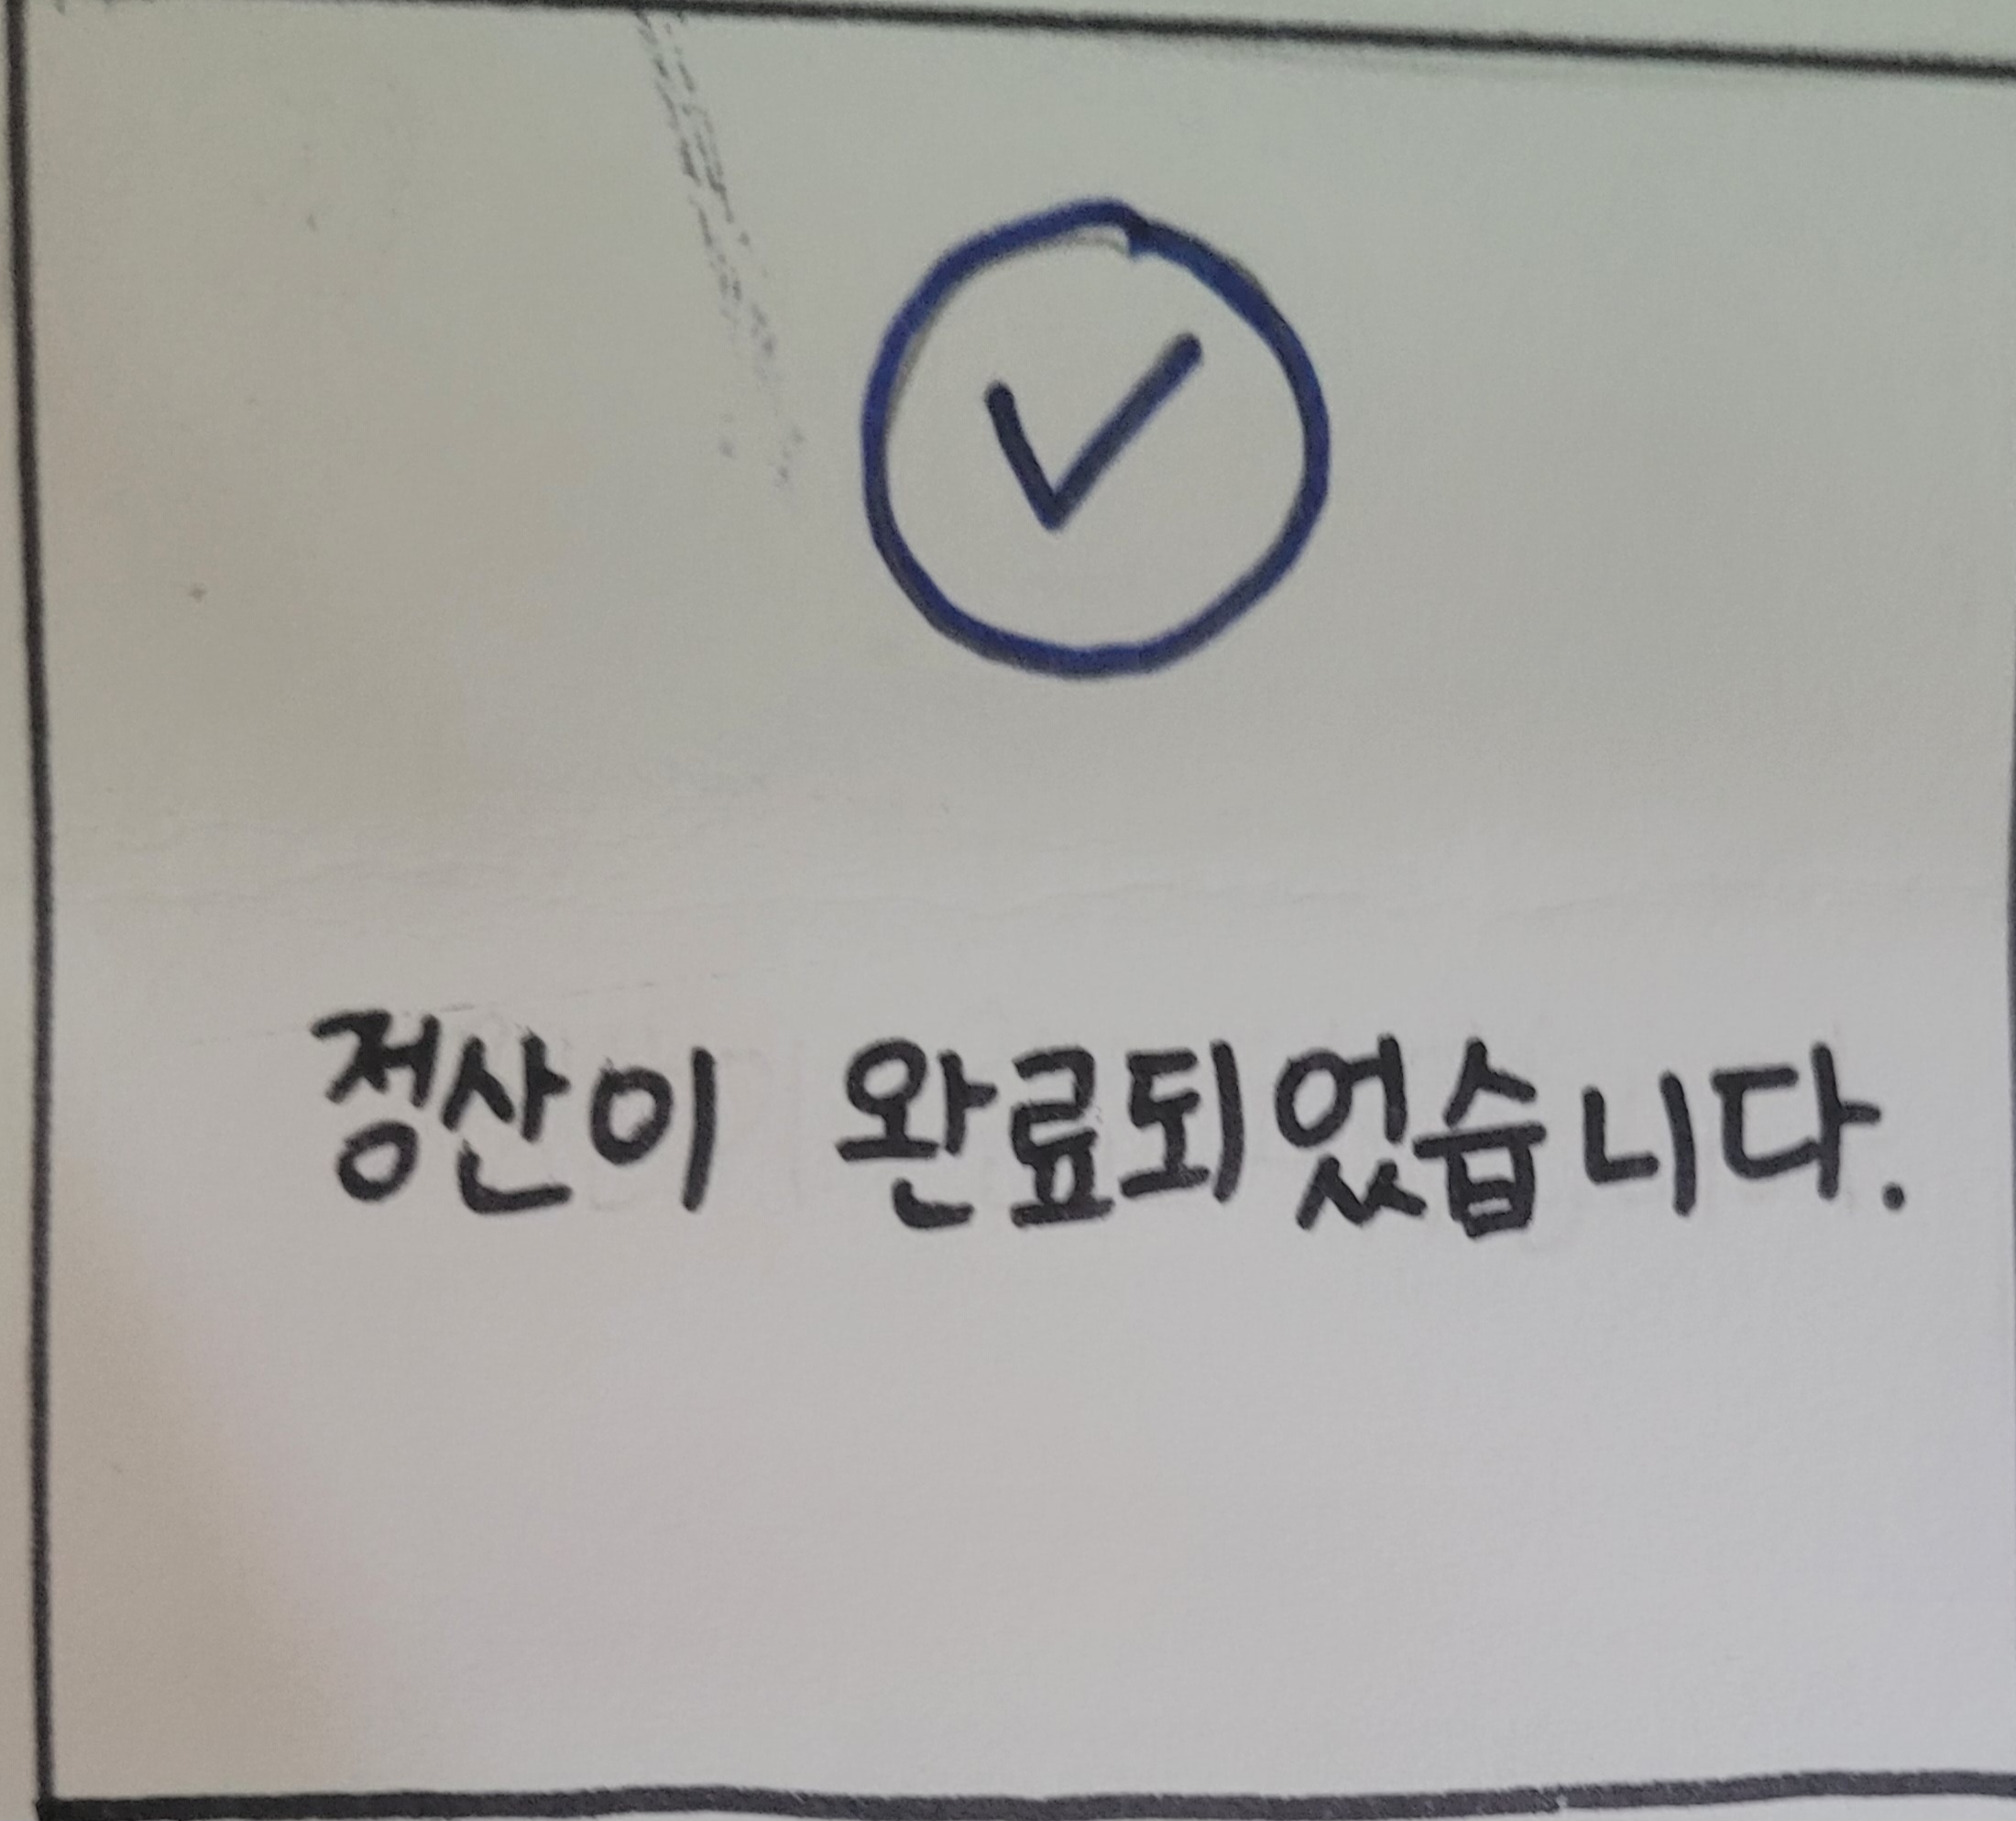 정산이 완료되었습니다.